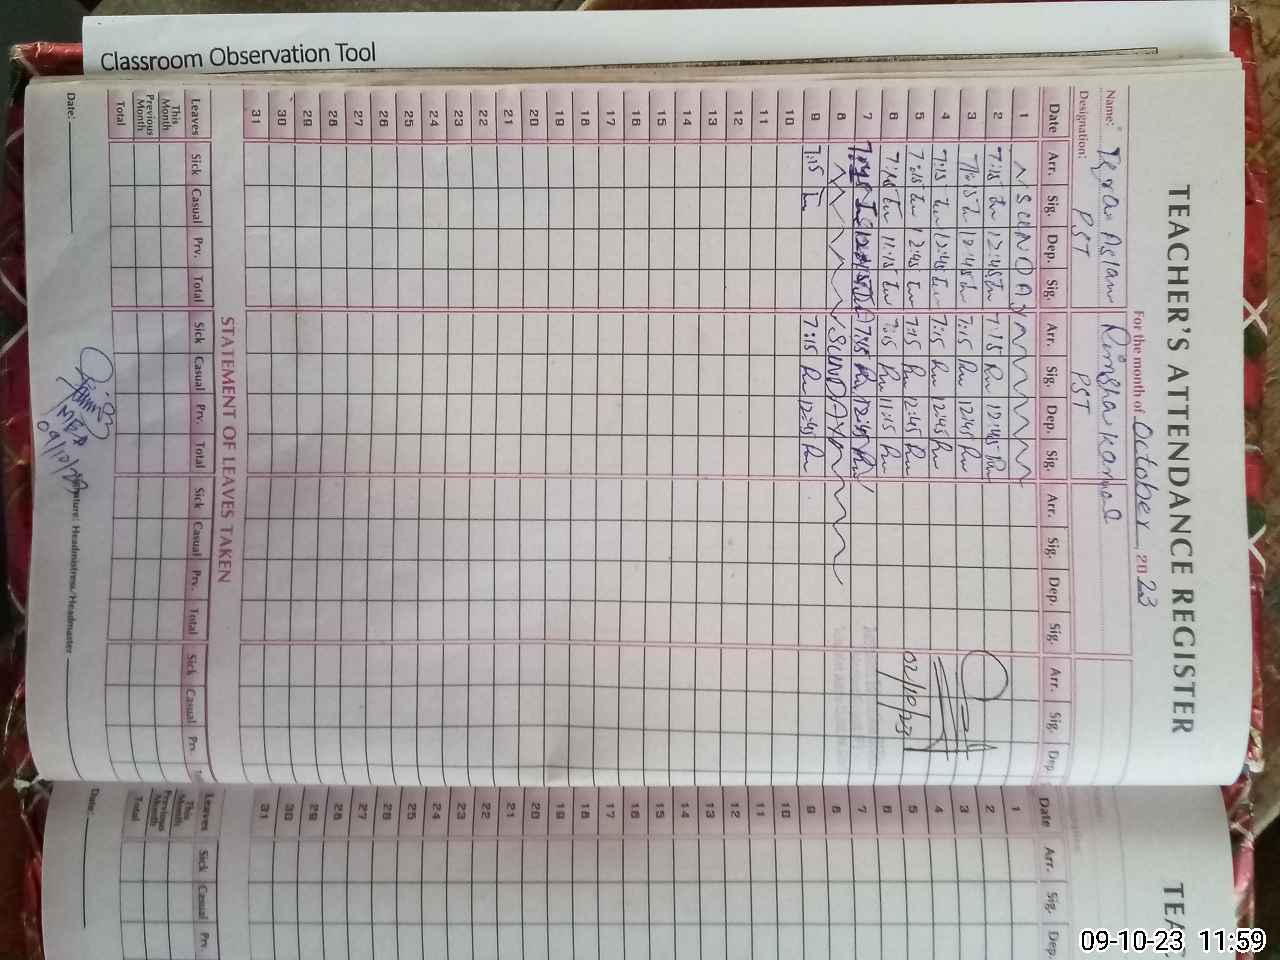 Classroom Observation Tool
TEACHER'S ATTENDANCE REGISTER
For the month of October 2023
Name: Iqra Aslam Rimsha Kanwal
Designation: PST PST
Date Arr. Sig. Dep. Sig. Arr. Sig. Dep. Sig. Arr. Sig. Dep. Sig. Arr. Sig. Dep.
1 SUNDAY
2 7:15 12:45 7:15 12:45
3 7:15 12:45 7:15 12:45
4 7:15 12:45 7:15 12:45
5 7:15 12:45 7:15 12:45
02/10/23
6 7:15 11:15 7:15 11:15
7 12:45 12:45
8 SUNDAY
9 7:15 7:15 12:45
10
11
12
13
14
15
16
17
18
19
20
21
22
23
24
25
26
27
28
29
30
31
STATEMENT OF LEAVES TAKEN
Leaves Sick Casual Prv. Total Sick Casual Prv. Total Sick Casual Prv. Total Sick Casual Prv.
This Month
Previous Month
Total
09/10/23
Date: Signature: Headmistress/Headmaster
TEA
Date Arr. Sig. Dep.
1
2
3
4
5
6
7
8
9
10
11
12
13
14
15
16
17
18
19
20
21
22
23
24
25
26
27
28
29
30
31
Leaves Sick Casual Prv.
This Month
Previous Month
Total
Date:
09-10-23 11:59